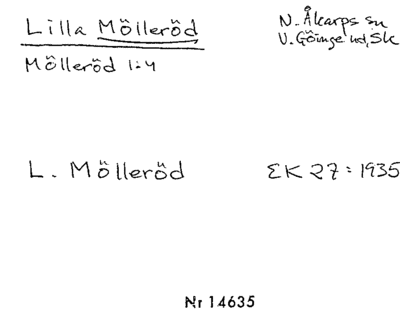 Lilla Mölleröd
N. Åkarps sn
V. Göinge hd, Sk
Mölleröd 1:4
L. Mölleröd
EK 27:1935
Nr 14635